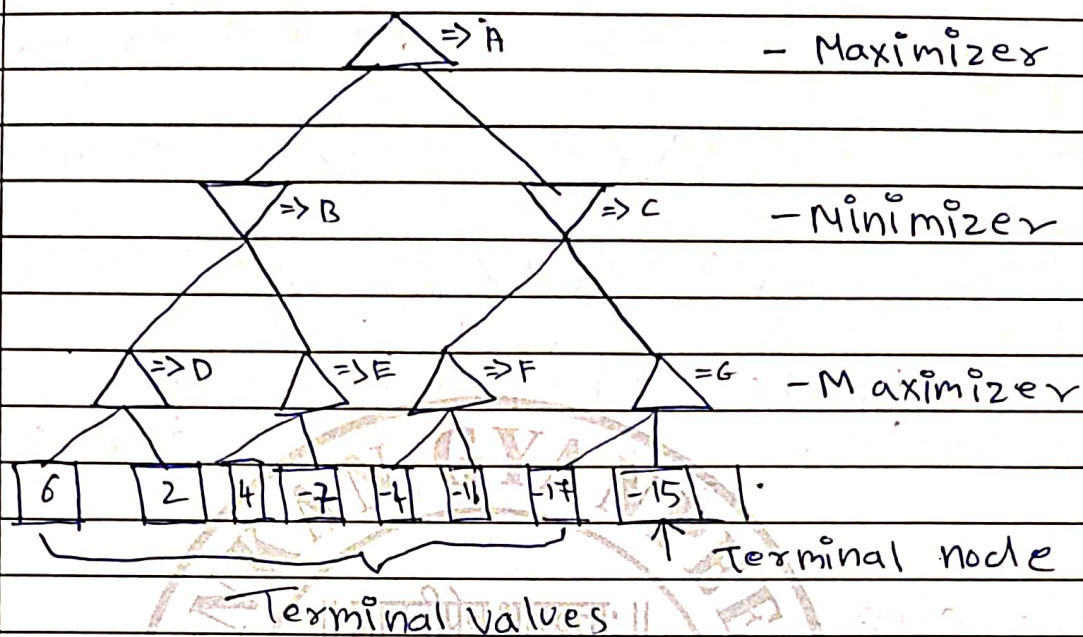 => A - Maximizer
=> B => C - Minimizer
=> D => E => F = G - Maximizer
6 2 4 -7 -4 -11 -17 -15
Terminal node
Terminal values